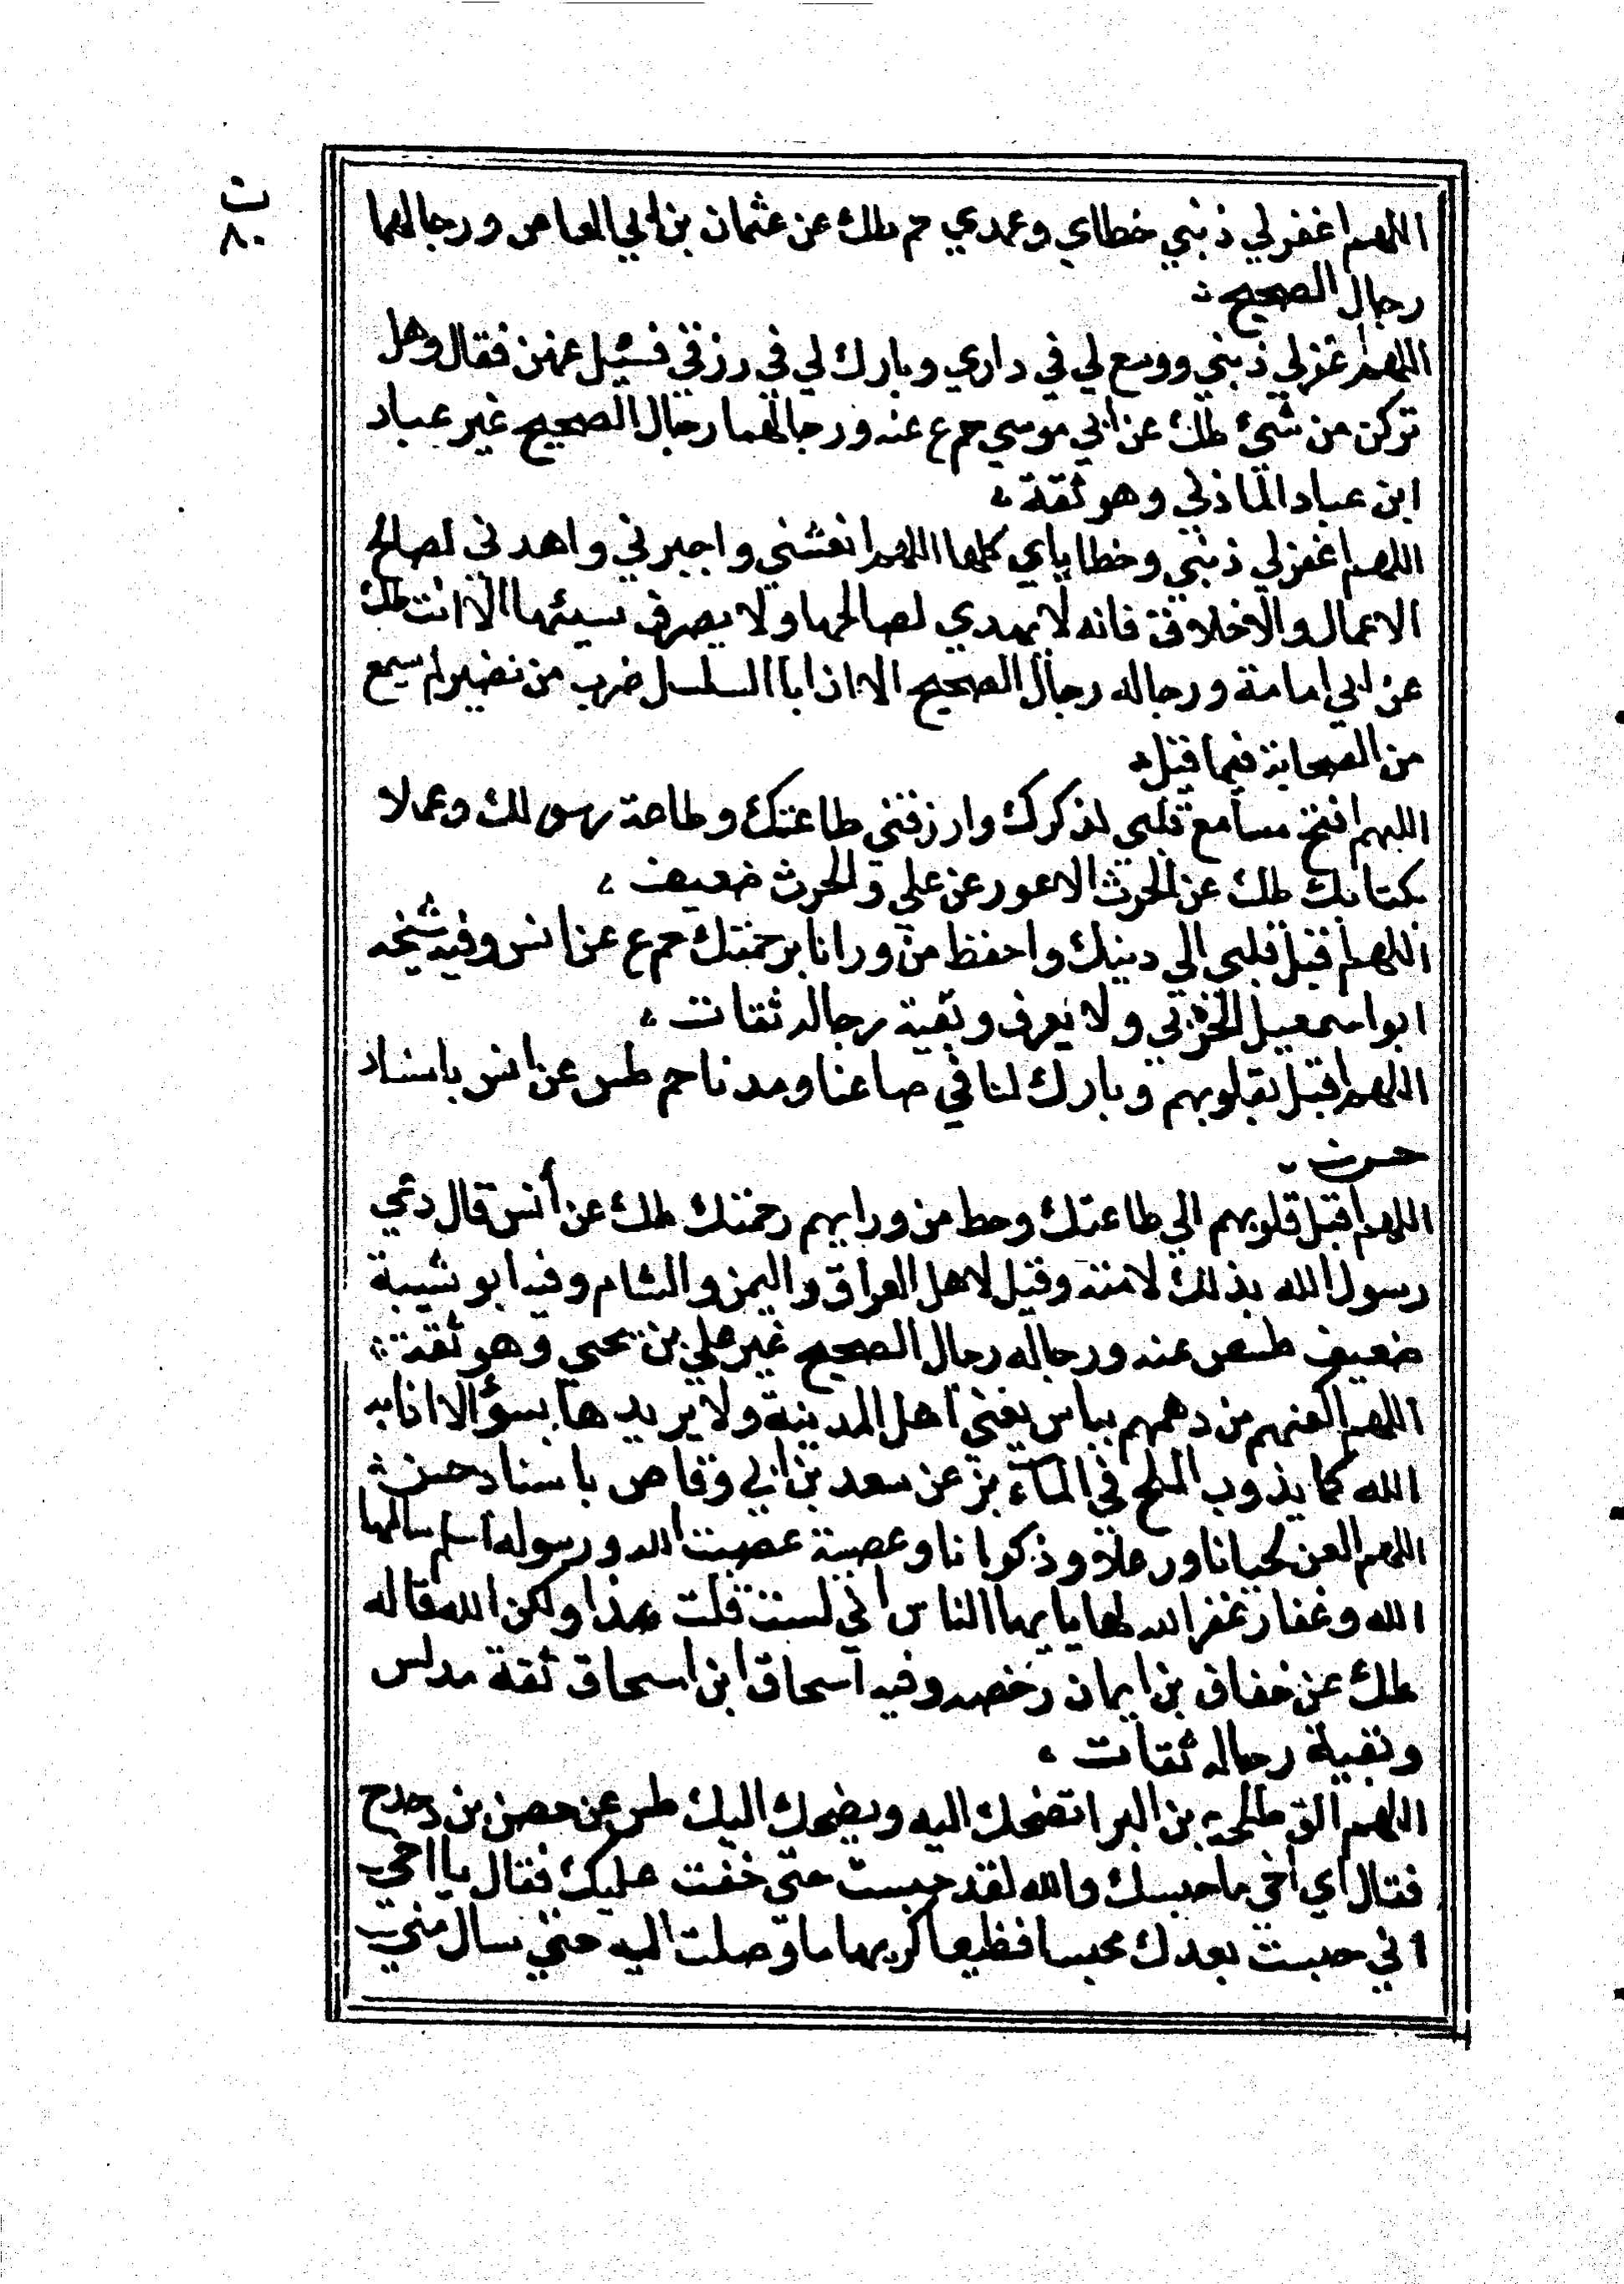 ت
٨٠
اللهم اغفر لي ذنبي خطاي وعمدي حم طك عن عثمان بن ابي العاص ورجالهما
رجال الصحيح
اللهم اغفر لي ذنبي ووسع لي في داري وبارك لي في رزقي فسئيل عنهن فقال وهل
تركن من شيء طك عن ابي موسي حم ع عنه ورجالهما رجال الصحيح غير عباد
ابن عباد الماذني وهو ثقة
اللهم اغفر لي ذنبي وخطاياي كلها اللهم انعشني واجبرني واهدني لصالح
الاعمال والاخلاق فانه لا يهدي لصالحها ولا يصرف سيئها الا انت طك
عن ابي امامة ورجاله رجال الصحيح الا ان ابا السلسل ضرب من نضير لم يسمع
من الصحابة فيما قيل
اللهم افتح مسامع قلبي لذكرك وارزقني طاعتك وطاعة رسولك وعملا
بكتابك طك عن الحرث الاعور عن علي والحرث ضعيف
اللهم اقبل قلبي الي دينك واحفظ من ورانا برحمتك حم ع عن انس وفيه شيخه
ابو اسمعيل ولا يعرف وبقية رجاله ثقات
اللهم اقبل بقلوبهم وبارك لنا في صاعنا ومدنا حم طس عن انس باسناد
حسن
اللهم اقبل قلوبهم الي طاعتك وحط من ورايهم رحمتك طك عن أنس قال دعي
رسول الله بذلك لامته وقيل لاهل العراق واليمن والشام وفيه ابو شيبة
ضعيف طسص عنه ورجاله رجال الصحيح غير علي بن يحيي وهو ثقة
اللهم اكفهم من دهمهم بباس يعني اهل المدينة ولا يريدها بسؤ الا اذابه
الله كما يذوب الملح في المآء بز عن سعد بن ابي وقاص باسناد حسن
اللهم العن لحيانا ورعلا وذكوانا وعصية عصيت الله ورسوله اسلم سالمها
الله وغفار غفر الله لها يا يها الناس اني لست قلت هذا ولكن الله قاله
طك عن خفاف بن ايمان وفيه اسحاق ابن اسحاق ثقة مدلس
وبقية رجاله ثقات
اللهم الق طلحة بن البرا تضحك اليه ويضحك اليك طس عن حصن بن دحدح
فقال اي اخي ما حبسك والله لقد حبست حتي خفت عليك فقال يا اخي
اني حبست بعدك محبسا فظيعا كريها ما وصلت اليه حتي سال مني